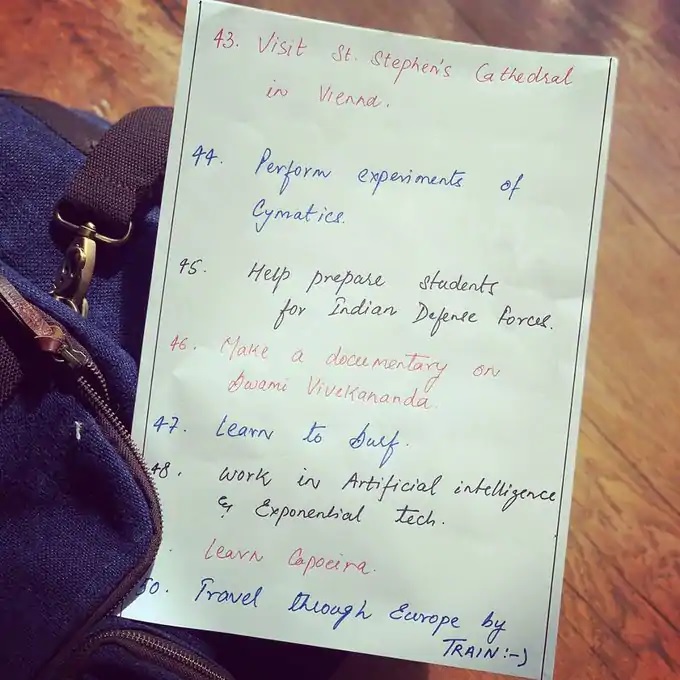 43. Visit St. Stephen's Cathedral
in Vienna.
44. Perform experiments of
Cymatics.
45. Help prepare students
for Indian Defense Forces.
46. Make a documentary on
Swami Vivekananda.
47. Learn to Surf.
48. Work in Artificial intelligence
& Exponential tech.
Learn Capoeira.
50. Travel through Europe by
TRAIN :-)